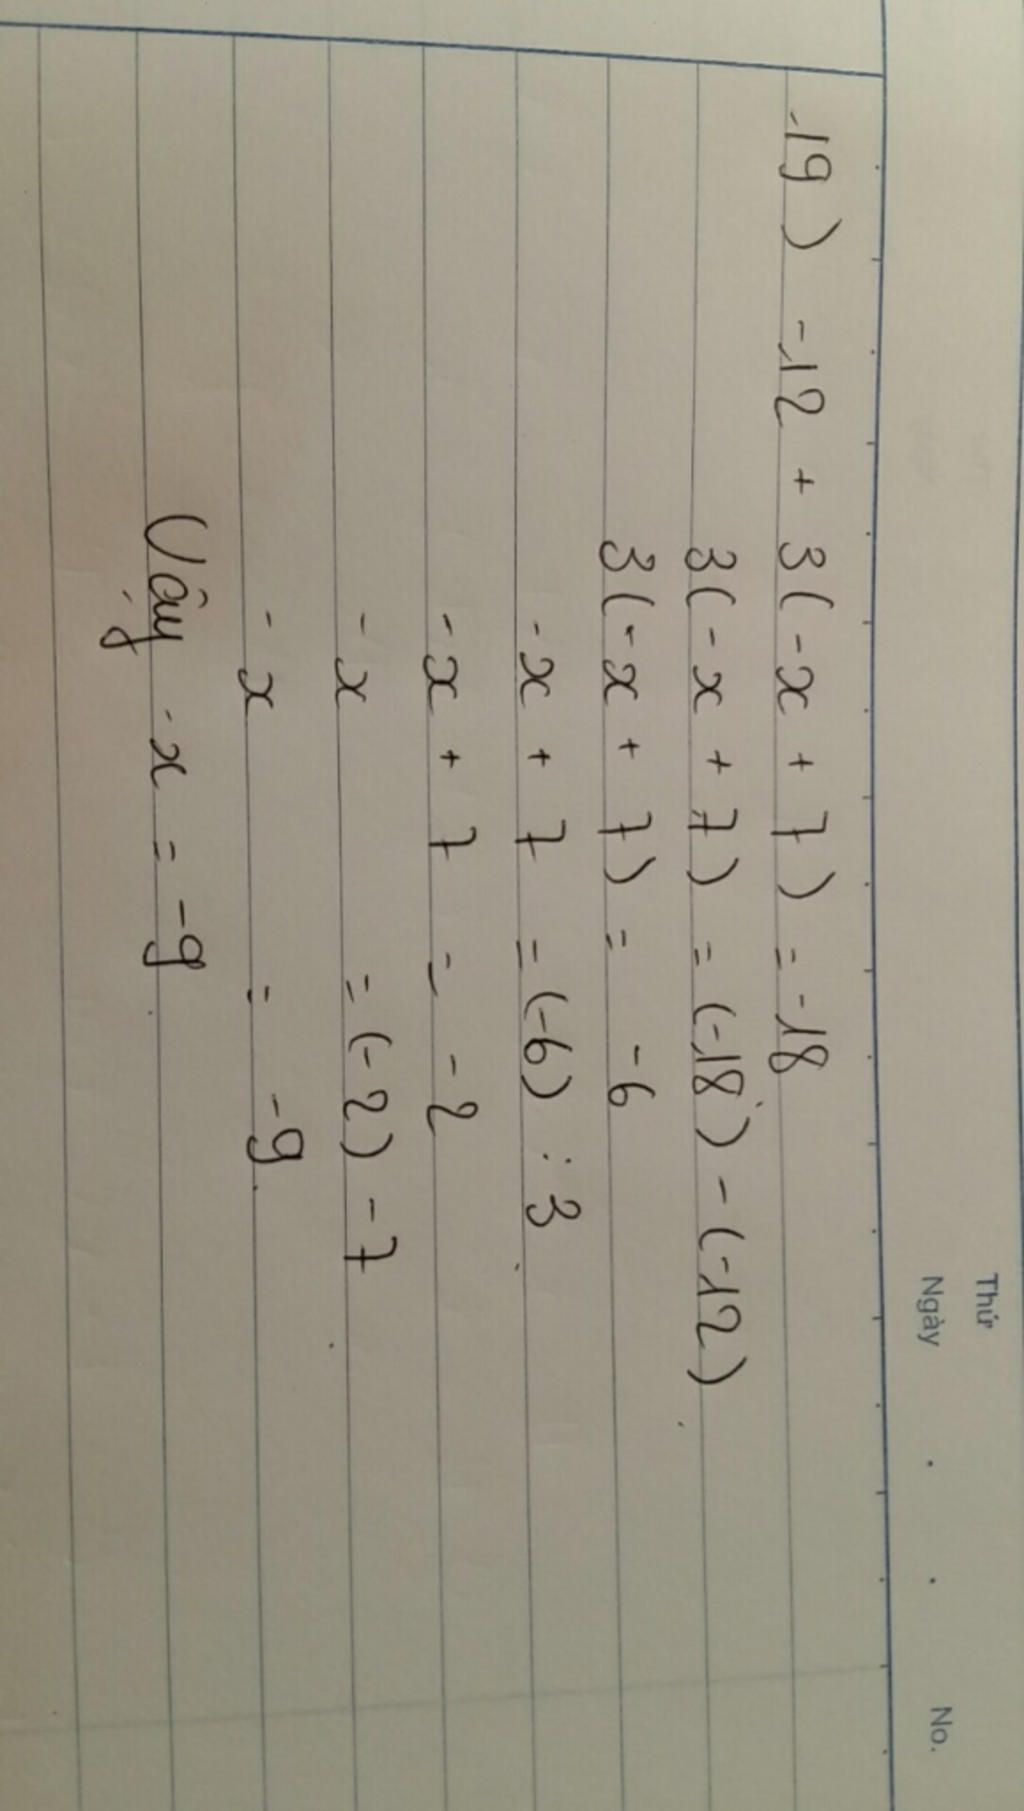 Thứ
Ngày . . No.
19) -12 + 3(-x + 7) = -18
3(-x + 7) = (-18) - (-12)
3(-x + 7) = -6
-x + 7 = (-6) : 3
-x + 7 = -2
-x = (-2) - 7
-x = -9
Vậy -x = -9